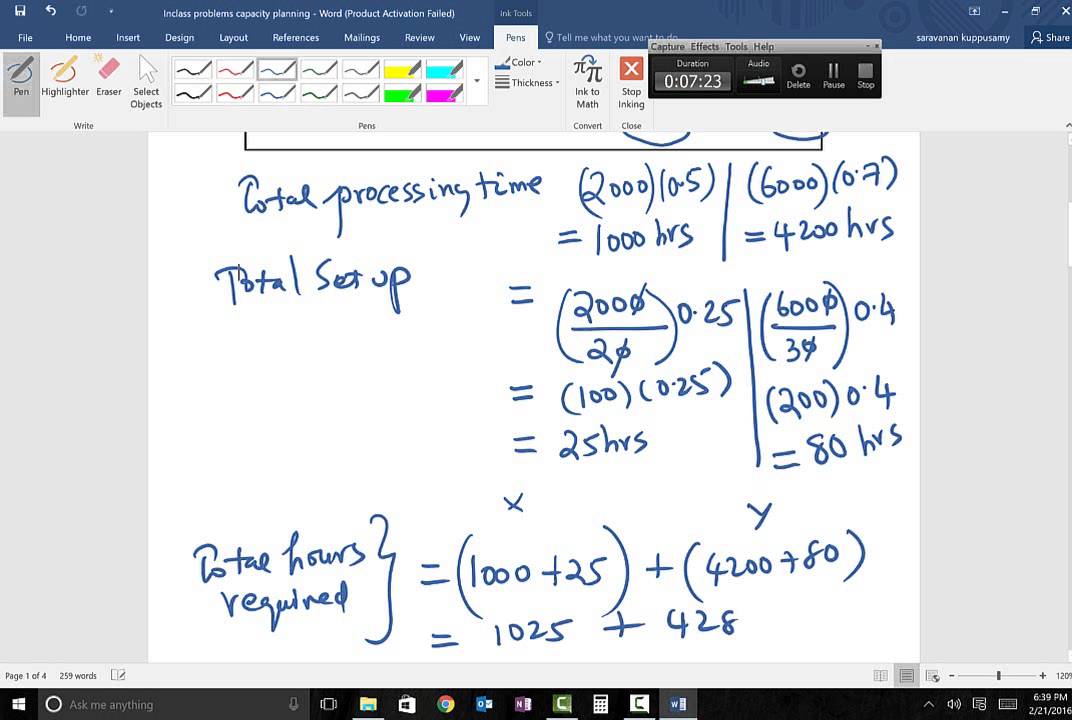 Inclass problems capacity planning - Word (Product Activation Failed)
Ink Tools
File Home Insert Design Layout References Mailings Review View Pens Tell me what you want to do... saravanan kuppusamy Share
Capture Effects Tools Help
Duration Audio
0:07:23 Delete Pause Stop
Pen Highlighter Eraser Select Objects
Color
Thickness
Ink to Math
Stop Inking
Write Pens Convert Close
Total processing time (2000)(0.5) | (6000)(0.7)
= 1000 hrs | = 4200 hrs
Total Set up = (2000/20) 0.25 | (6000/30) 0.4
= (100)(0.25) | (200) 0.4
= 25 hrs | = 80 hrs
X Y
Total hours required } = (1000 + 25) + (4200 + 80)
= 1025 + 428
Page 1 of 4 259 words 120%
Ask me anything
6:39 PM
2/21/2016